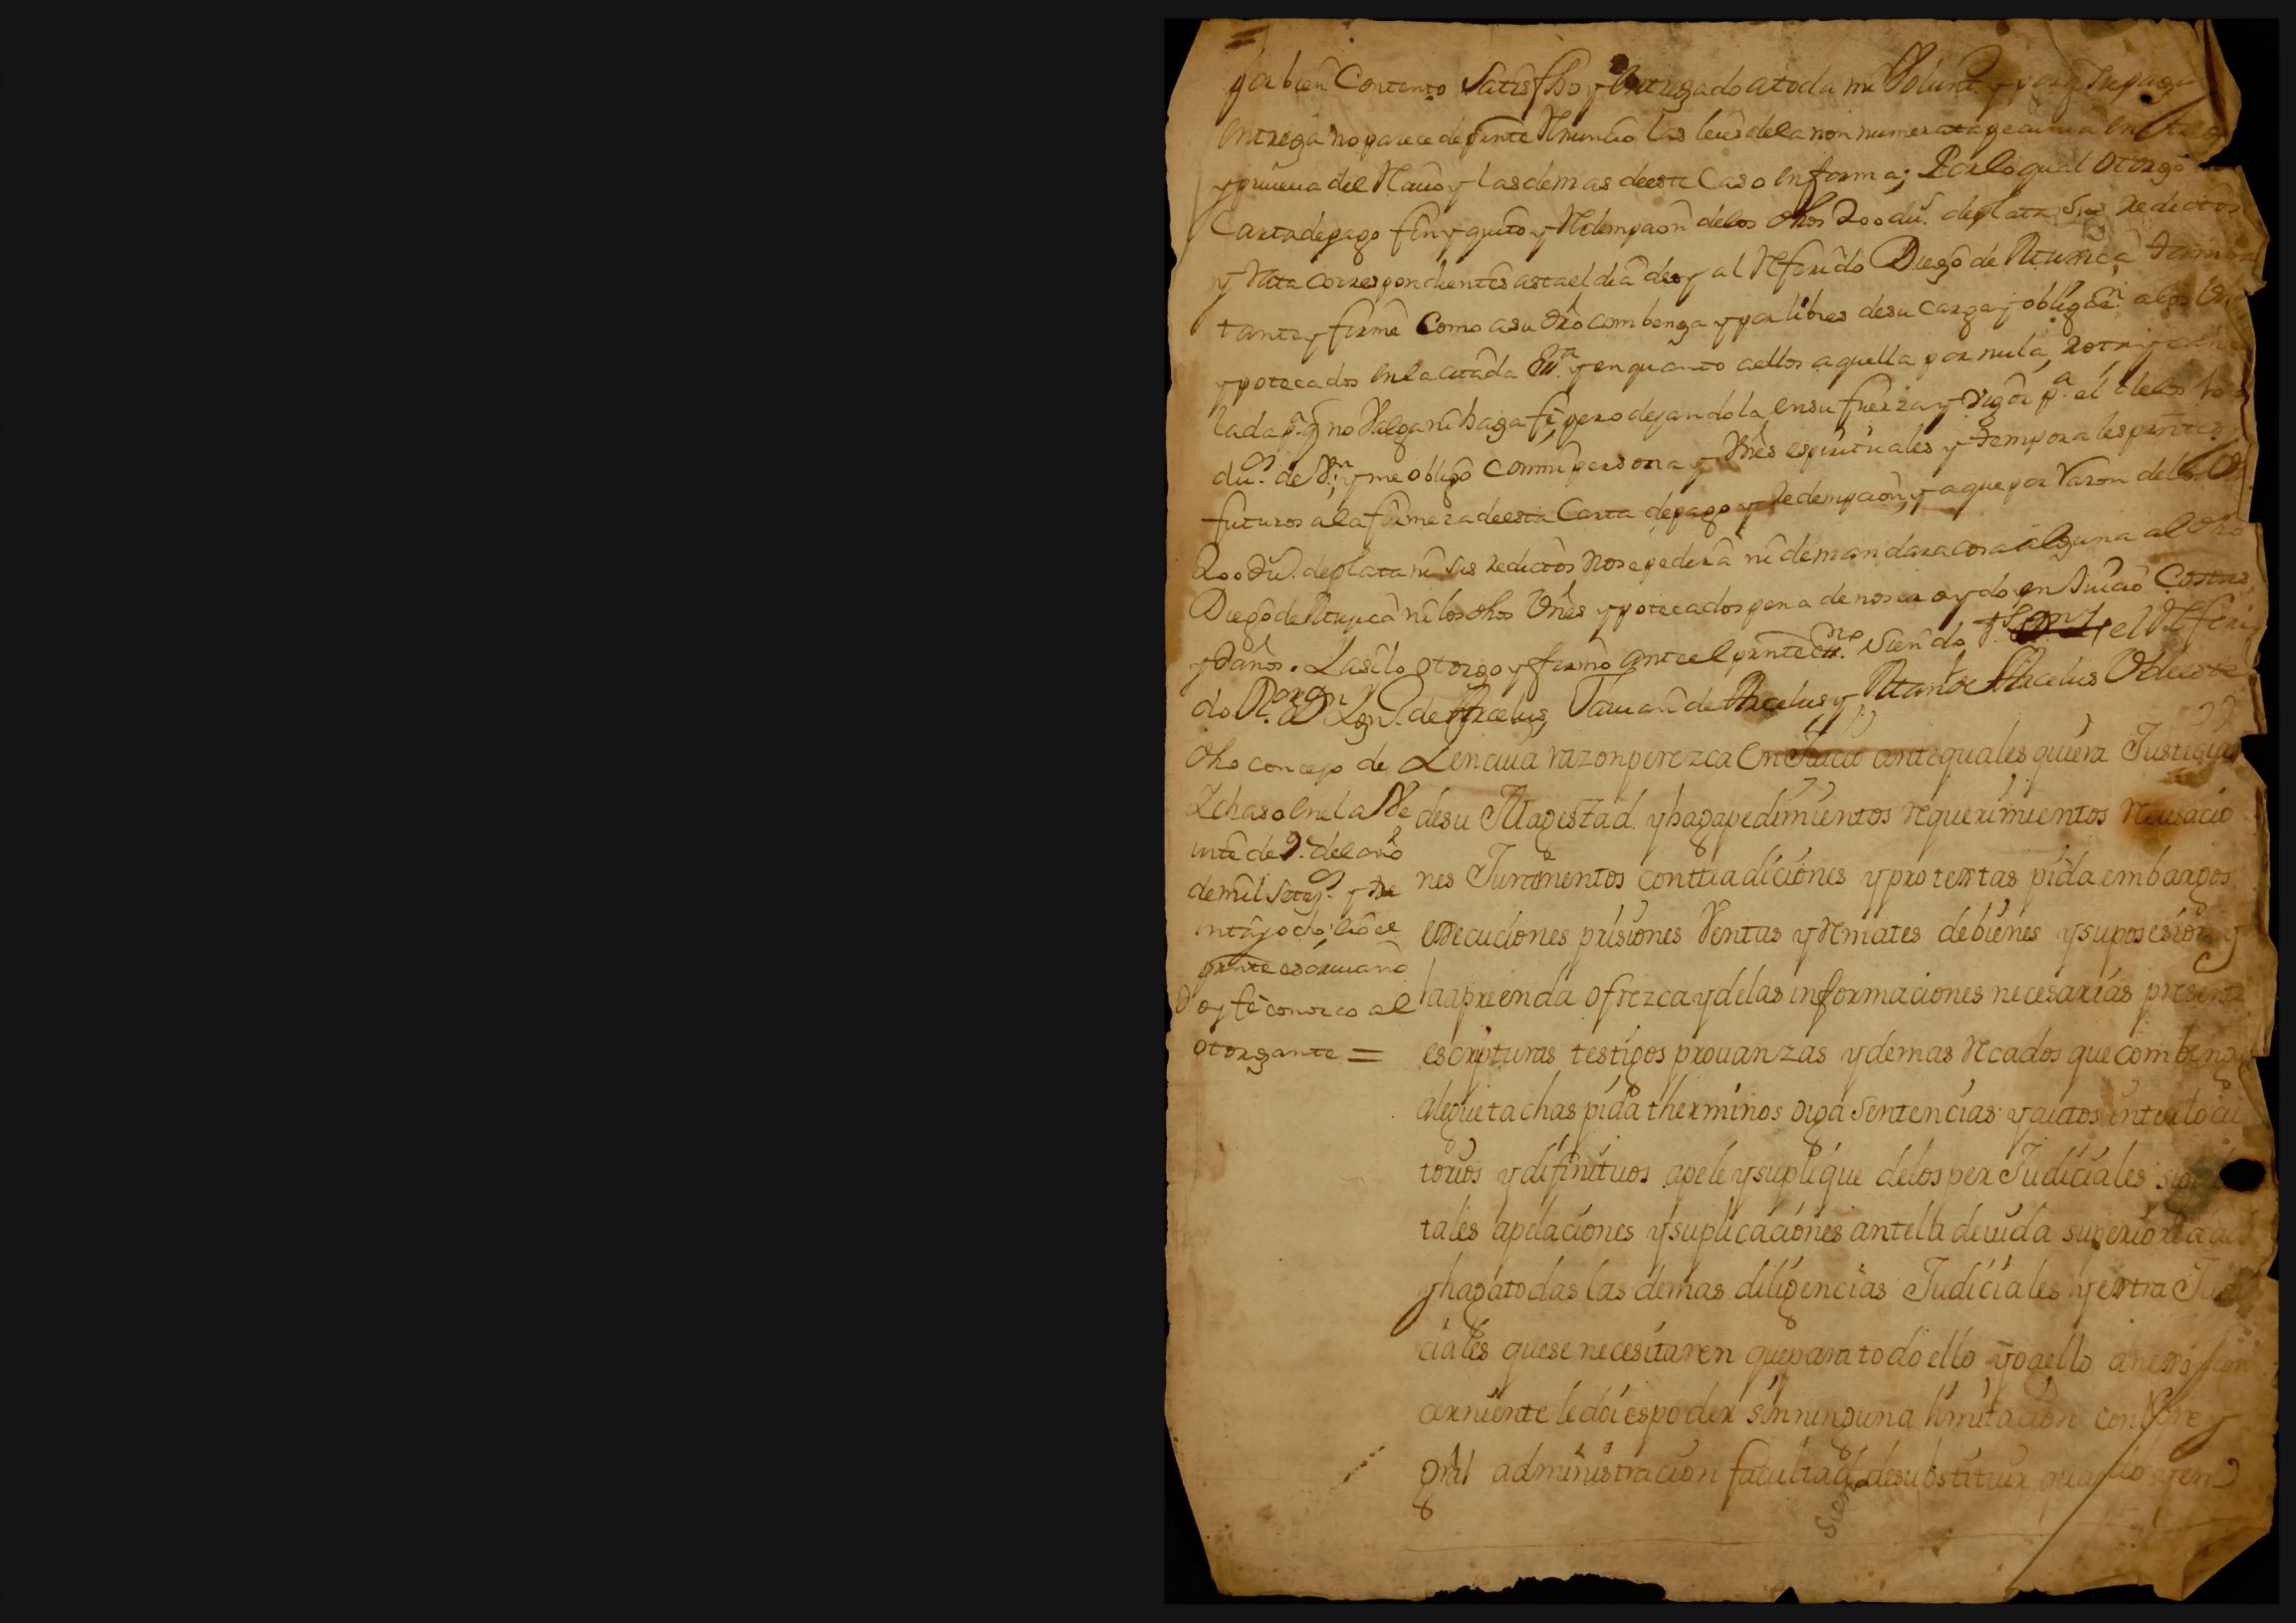 por bien Contento Satisfho y Entregado atoda mi Volunt. y porq̃ Su paga
entrega no parece de pñte Renuncio las leies dela non numerata pecunia entrega
y prueua del Reciuo y las demas deeste Caso en forma; Por lo qual Otorgo
Carta depago fin y quito y Redempcion delos dhos 200 du.s deplata Sus Redictos
y Rata correspondientes asta el dia de oy al Referido Diego de
tante y firme Como asu dro combenga y por libres desu carga y obligaon. alos
ypotecados en la citada y en quanto aellos aquella por nula, Rota y
lada p.a q̃ no Valga ni haga fee pero dejandola en su fuerza y Vigor p.a el
du.s de y me obligo con mi persona y Vnes espirituales y temporales pñtes y
futuros ala firmeza deesta Carta depago y Redempcion, y aque por Razon delos
200 du.s deplata ni Sus Redictos Nose pedira ni demandara cosa alguna al dho
Diego de ni los dhos Vnes ypotecados pena de no ser oydo en Juicio Costas
y Daños. Lasilo otorgo y firmo ante el pñte siendo t.s el Referi
do de Arcelus, de Arcelus y Arcelus deeste
dho concejo de
Echaso en el a Ve
inte de 9.e del año
de mil Setez.s y tre
inta y ocho; e Yo el
pñte escriuano
doy fe conozco al
otorgante =
Lenciua razon perezca En Juicio ante quales quiera Justicias
desu Magestad. y haga pedimientos Requerimientos Recusacio
nes Juramentos contradiciones y protextas pida embargos
execuciones prisiones Ventas y Remates de bienes y su posesion y
la aprenda ofrezca y de las informaciones necesarias presente
escripturas testigos prouanzas y demas Recados que combenga
alegue tachas pida therminos oiga Sentencias y autos interlocu
torios y difinitiuos apele y suplique delos per Judiciales siga
tales apelaciones y suplicaciones ante la deuida superioridad
y haga todas las demas diligencias Judiciales y extra Judi
ciales que se necesitaren que para todo ello yo aello anexo y con
cerniente le doi es poder sin ninguna limitacion con libre y
gral administracion facultad de substituir quando y en